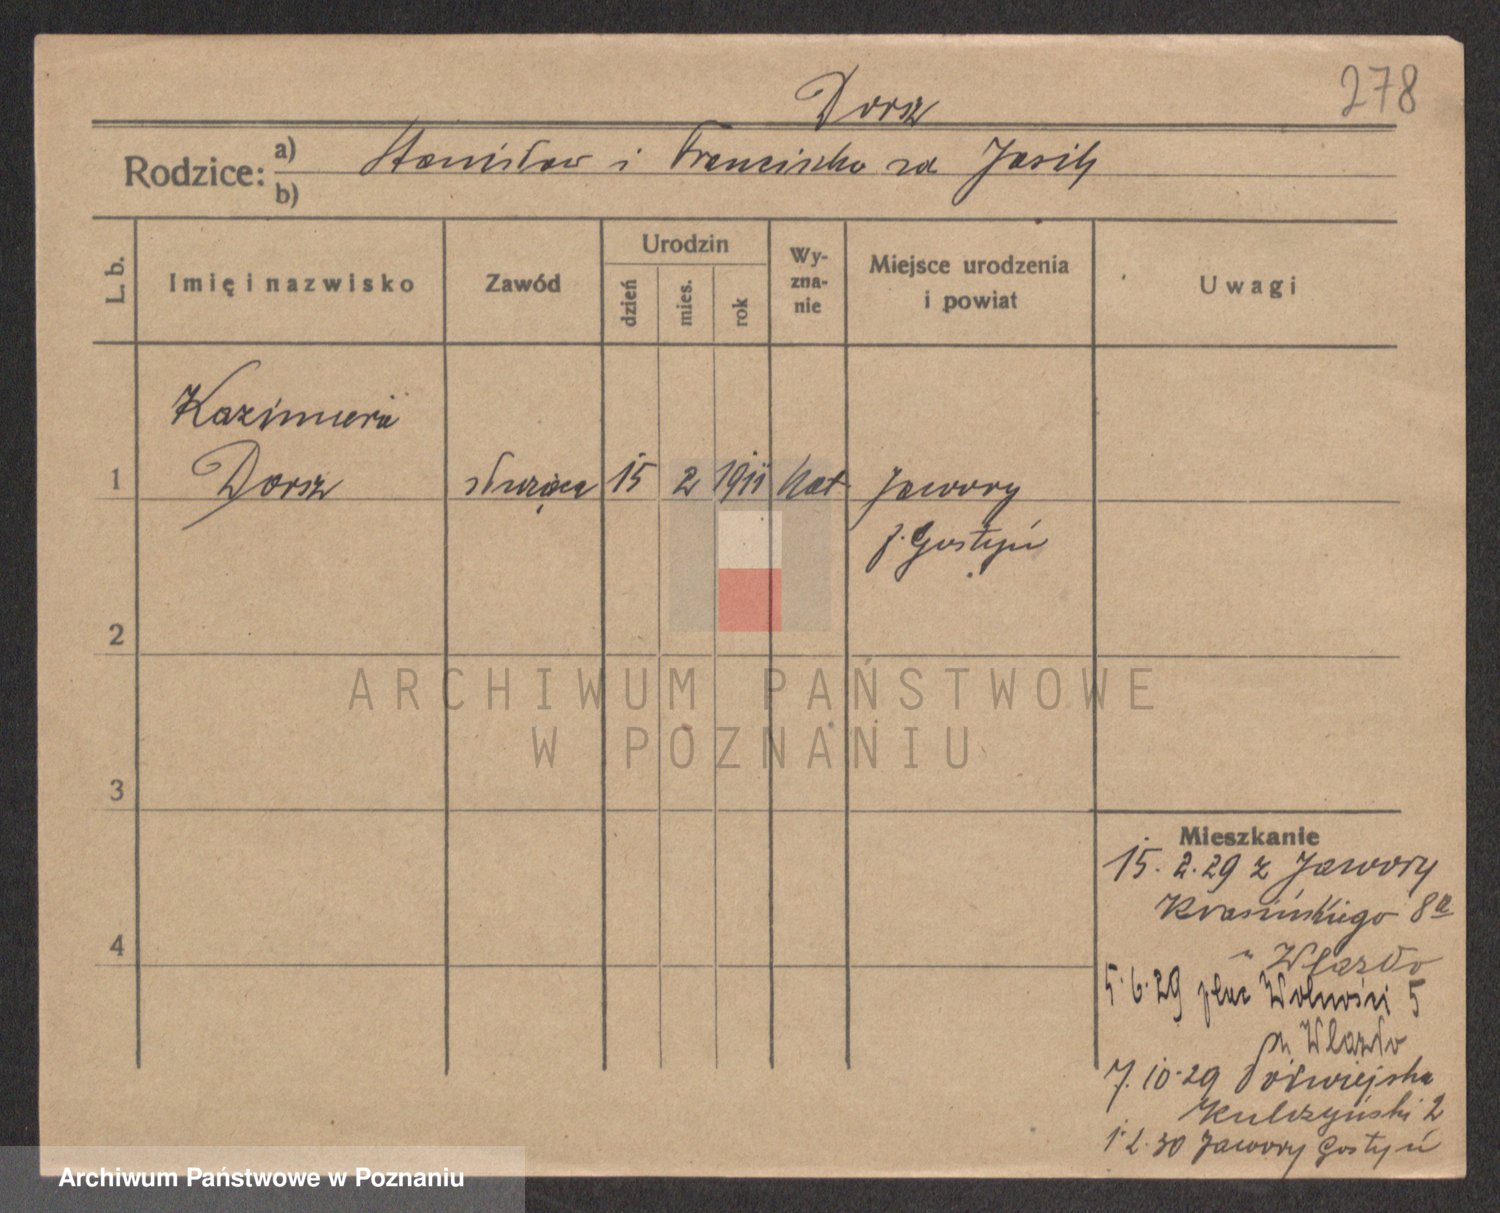 278
Dorsz
Rodzice: a) Stanisław i Franciszka za Jasik
b)
L. b.
Imię i nazwisko
Zawód
Urodzin
dzień
mies.
rok
Wy-
zna-
nie
Miejsce urodzenia
i powiat
Uwagi
Kazimiera
1 Dorsz służąca 15 2 1911 kat Jawory
p. Gostyń
2
ARCHIWUM PAŃSTWOWE
W POZNANIU
3
Mieszkanie
15. 2. 29 z Jawory
Krasińskiego 8a
4
" Wlazło
5. 6. 29 plac Wolności 5
Wlazło
7. 10. 29 Półwiejska
Kulczyński 2
1. 2. 30 Jawory Gostyń
Archiwum Państwowe w Poznaniu